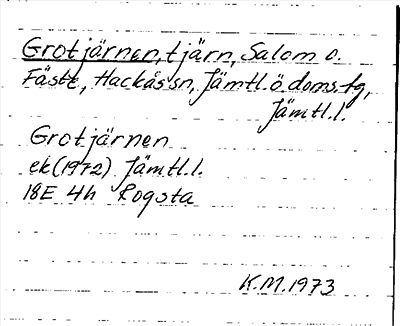 Grotjärnen, tjärn, Salom o.
Fäste, Hackås sn, Jämtl. ö. doms. tg,
Jämtl. l.
Grotjärnen
ek (1972) Jämtl. l.
18E 4h Rogsta
K.M. 1973